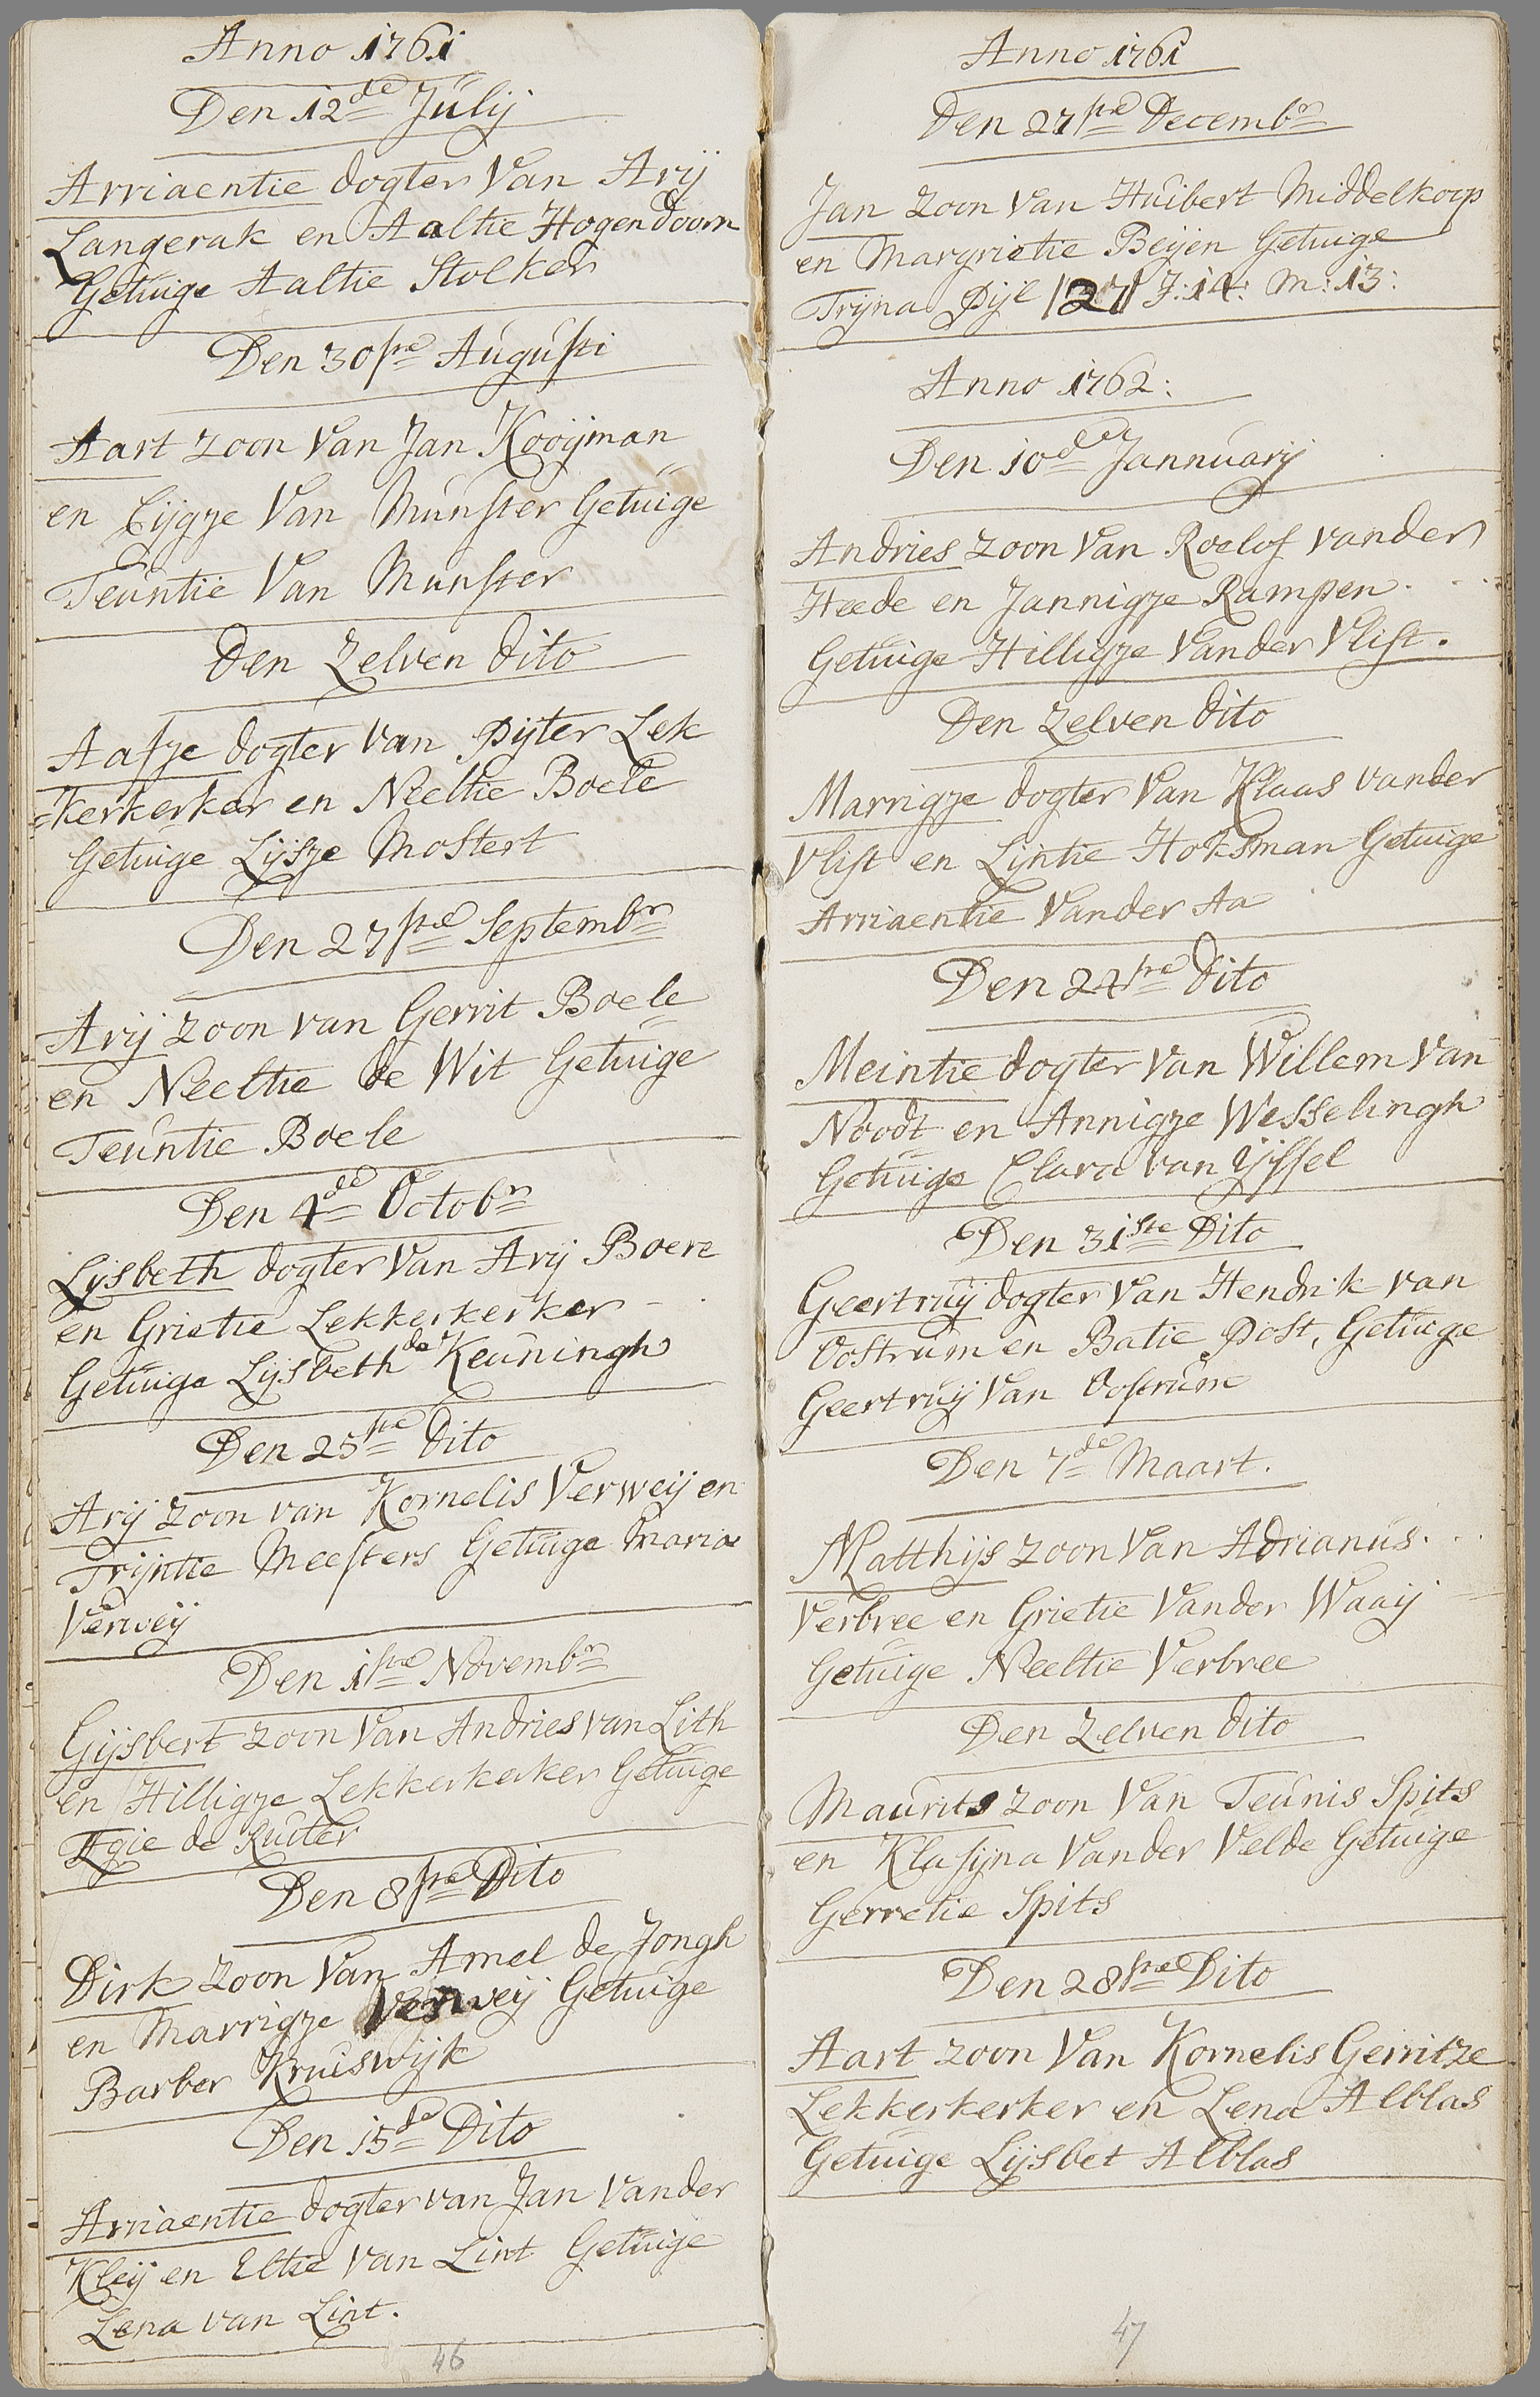 Anno 1761
Den 12de Julij
Arriaentie dogter Van Arij
Langerak en Aaltie Hogendoorn
Getuige Aaltie Stolker
Den 30ste Augusti
Aart zoon Van Jan Kooijman
en Eijgje Van Munster Getuige
Teuntie Van Munster
Den Zelven dito
Aafje dogter van Pijter Lek
=kerkerker en Neeltie Boele
Getuige Lijsje Mostert
Den 27ste Septembr
Arij zoon van Gerrit Boele
en Neeltie de Wit Getuige
Teuntie Boele
Den 4de Octobr
Lijsbeth dogter Van Arij Boere
en Grietie Lekkerkerker
Getuige Lijsbeth de Keuningh
Den 25ste dito
Arij zoon van Kornelis Verweij en
Trijntie Meesters Getuige Maria
Verweij
Den 1ste Novembr
Gijsbert zoon Van Andries van Lith
en Hilligje Lekkerkerker Getuige
Egie de Ruiter
Den 8ste Dito
Dirk zoon Van Amel de Jongh
en Marrigje Verweij Getuige
Barber Kruiswijk
Den 15de Dito
Arriaentie dogter van Jan Vander
Kleij en Eltie van Lint Getuige
Lena van Lint.
46
Anno 1761
Den 27ste Decembr
Jan zoon Van Huibert Middelkoop
en Margrietie Beijen Getuige
Trijna Pijl /27/ J: 14: M: 13:
Anno 1762:
Den 10de Jannuarij
Andries zoon Van Roelof vander
Heede en Jannigje Rampen
Getuige Hilligje Vander Vlist.
Den Zelven dito
Marrigje dogter Van Klaas vander
Vlist en Lijntie Hoksman Getuige
Arriaentie Vander Aa
Den 24ste dito
Meintie dogter Van Willem Van
Noodt en Annigje Wesselingh
Getuige Clara van Yssel
Den 31ste Dito
Geertruij dogter Van Hendrik van
Oostrum en Batie Post, Getuige
Geertruij Van Oostrum
Den 7de Maart.
Matthijs zoon Van Adrianus
Verbree en Grietie Vander Waaij
Getuige Neeltie Verbree
Den Zelven dito
Maurits zoon Van Teunis Spits
en Klasijna Vander Velde Getuige
Gerretie Spits
Den 28ste Dito
Aart zoon Van Kornelis Gerritze
Lekkerkerker en Lena Alblas
Getuige Lijsbet Alblas
47